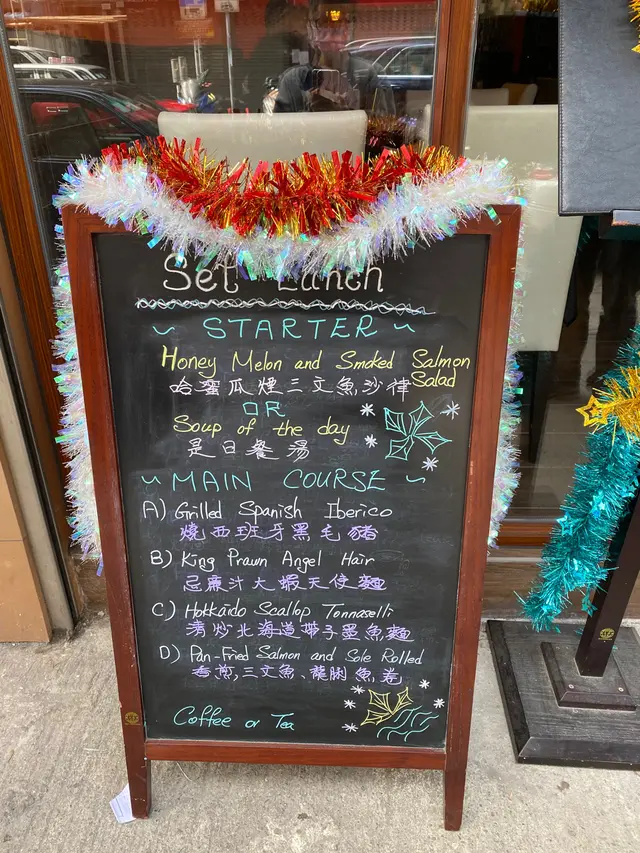 Set Lunch
~ STARTER ~
Honey Melon and Smoked Salmon Salad
哈蜜瓜煙三文魚沙律
OR
Soup of the day
是日餐湯
~ MAIN COURSE ~
A) Grilled Spanish Iberico
燒西班牙黑毛豬
B) King Prawn Angel Hair
忌廉汁大蝦天使麵
C) Hokkaido Scallop Tonnaselli
清炒北海道帶子墨魚麵
D) Pan-Fried Salmon and Sole Rolled
香煎三文魚、龍脷魚卷
Coffee or Tea